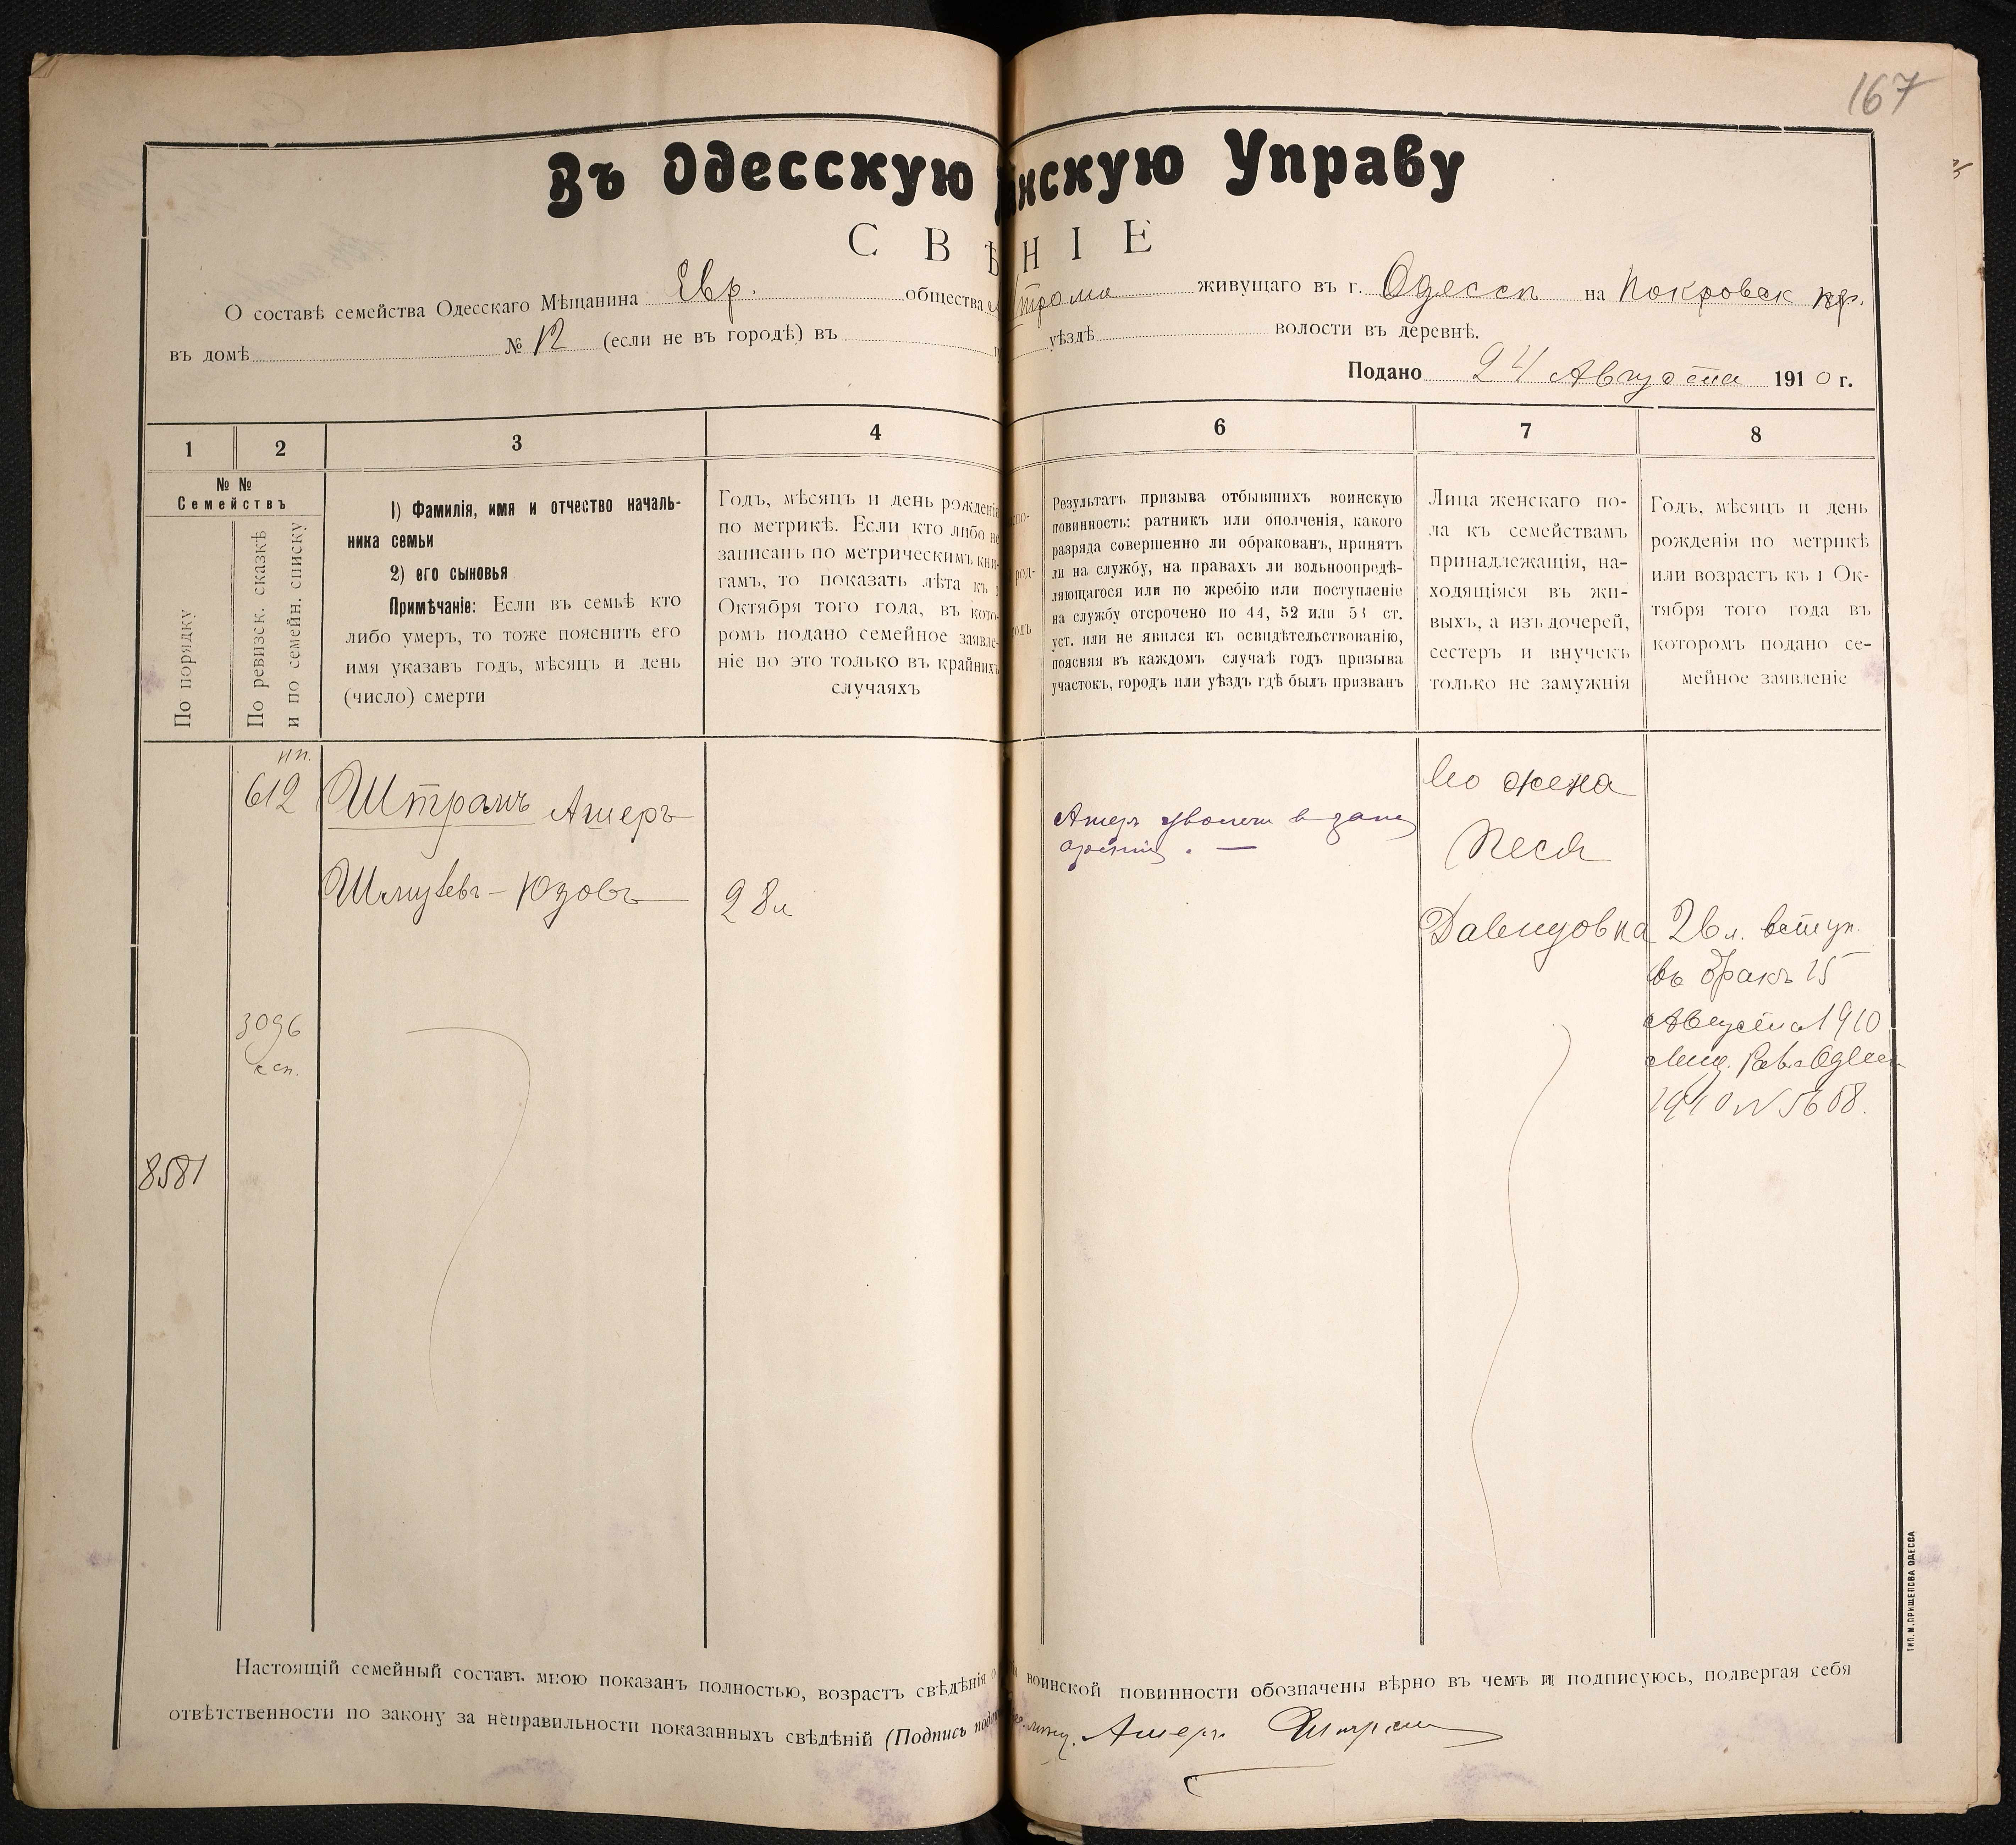 167
Въ Одесскую нскую Управу
С В Ѣ Н І Е
О составѣ семейства Одесскаго Мѣщанина Евр. общества Штрама живущаго въ г. Одессѣ на Покровск пер.
въ домѣ № 12 (если не въ городѣ) въ уѣздѣ волости въ деревнѣ.
Подано 24 Августа 1910 г.
1 2 3 4 6 7 8
№ №
Семействъ
По порядку
По ревизск. сказкѣ
и по семейн. списку
1) Фамилія, имя и отчество началь-
ника семьи
2) его сыновья
Примѣчаніе: Если въ семьѣ кто
либо умеръ, то тоже пояснить его
имя указавъ годъ, мѣсяцъ и день
(число) смерти
Годъ, мѣсяцъ и день рожденія
по метрикѣ. Если кто либо не
записанъ по метрическимъ кни-
гамъ, то показать лѣта къ 1
Октября того года, въ кото-
ромъ подано семейное заявле-
ніе но это только въ крайнихъ
случаяхъ
Результатъ призыва отбывшихъ воинскую
повинность: ратникъ или ополченія, какого
разряда совершенно ли обракованъ, принятъ
ли на службу, на правахъ ли вольноопредѣ-
ляющагося или по жребію или поступленіе
на службу отсрочено по 44, 52 или 53 ст.
уст. или не явился къ освидѣтельствованію,
поясняя въ каждомъ случаѣ годъ призыва
участокъ, городъ или уѣздъ гдѣ былъ призванъ
Лица женскаго по-
ла къ семействамъ
принадлежащія, на-
ходящіяся въ жи-
выхъ, а изъ дочерей,
сестеръ и внучекъ
только не замужнія
Годъ, мѣсяцъ и день
рожденія по метрикѣ
или возрастъ къ 1 Ок-
тября того года въ
которомъ подано се-
мейное заявленіе
612
Штрамъ Ашеръ
Шмулевъ-Юзовъ
28 л
3096
к сп.
8581
Ашеръ уволенъ в запас
арміи. —
Его жена
Песя
Давидовна
26 л. вступ.
въ бракъ 15
Августа 1910
1910 № 5668.
Настоящій семейный составъ мною показанъ полностью, возрастъ свѣдѣнія о воинской повинности обозначены вѣрно въ чемъ и подписуюсь, подвергая себя
отвѣтственности по закону за неправильности показанныхъ свѣдѣній (Подпись Ашеръ Штрам
ТИП. М. ПРИЩЕПОВА ОДЕССА